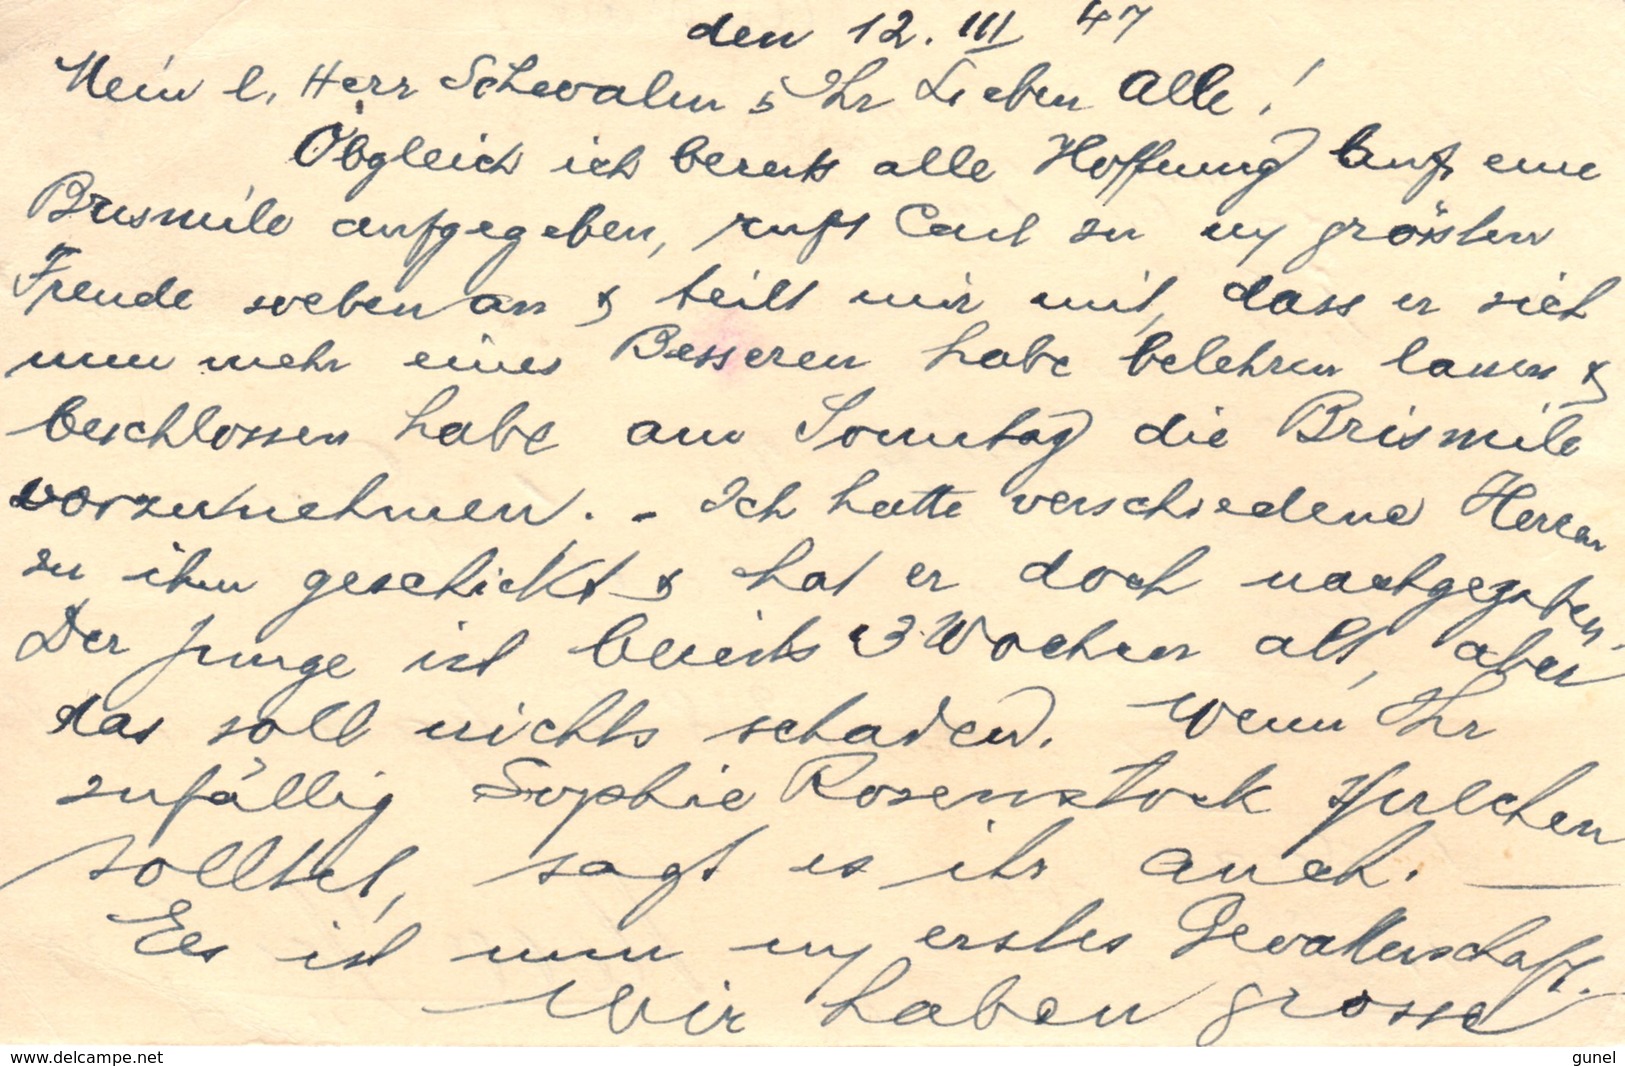 den 12. III 47
Mein l. Herr Schewalm & Ihr Lieben Alle!
Obgleich ich bereits alle Hoffnung auf eine
Brismile aufgegeben, ruft Carl zu my grössten
Freude soeben an & teilt mir mit, dass er sich
nun mehr eines Besseren habe belehren lassen &
beschlossen habe am Sonntag die Brismile
vorzunehmen. - Ich hatte verschiedene Herren
zu ihm geschickt & hat er doch nachgegeben.
Der Junge ist bereits 3 Wochen alt, aber
das soll nichts schaden. Wenn Ihr
zufällig Sophie Rosenstock sprechen
solltet, sagt es ihr auch. —
Es ist nun my erstes Gevatterschaft.
Wir haben grosse
www.delcampe.net
gunel